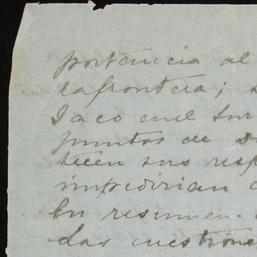 portancia al
rafrontera; s
Iaco en el Sur
puntos de s
tecen sus resp
impedirian a
En resumen.
Las cuestione